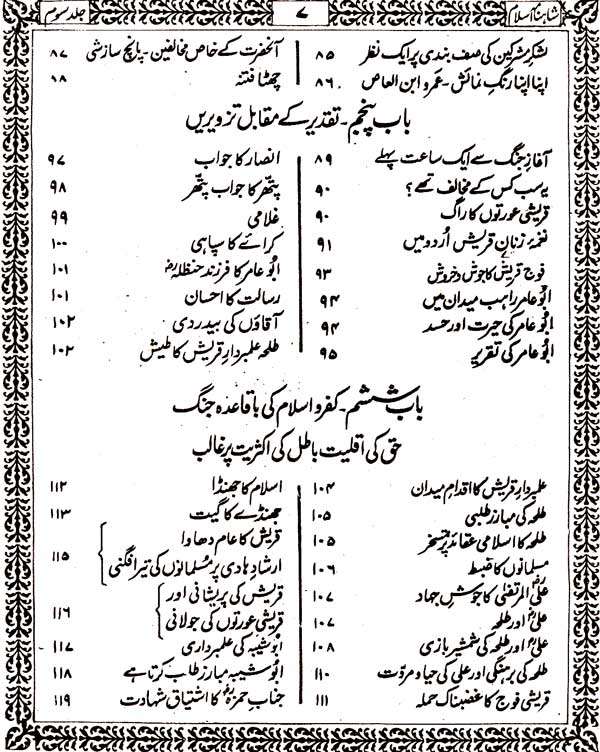 شاہنامۂ اسلام
۷
جلد سوم
لشکرِ مشرکین کی صف بندی پر ایک نظر ۸۵
اپنا اپنا رنگِ نمائش - عمرو ابن العاص ۸۶
آنحضرت کے خاص مخالفین - پانچ سازشی ۸۷
چھٹا فتنہ ۸۸
باب پنجم - تقدیر کے مقابل تزویریں
آغازِ جنگ سے ایک ساعت پہلے ۸۹
یہ سب کس کے مخالف تھے؟ ۹۰
قریشی عورتوں کا راگ ۹۰
نغمۂ زنانِ قریش اُردو میں ۹۱
فوجِ قریش کا جوش و خروش ۹۳
ابُو عامر راہب میدان میں ۹۴
ابُو عامر کی حیرت اور حسد ۹۴
ابُو عامر کی تقریر ۹۵
انصار کا جواب ۹۷
پتھّر کا جواب پتھّر ۹۸
غلامی ۹۹
کرائے کا سپاہی ۱۰۰
ابُو عامر کا فرزند حنظلہؓ ۱۰۱
رسالت کا احسان ۱۰۱
آقاؤں کی بیدردی ۱۰۲
طلحہ علمبردارِ قریش کا طیش ۱۰۲
باب ششم - کفر و اسلام کی باقاعدہ جنگ
حق کی اقلیت باطل کی اکثریت پر غالب
علمبردارِ قریش کا اقدامِ میدان ۱۰۴
طلحہ کی مبارز طلبی ۱۰۵
طلحہ کا اسلامی عقائد پر تمسخر ۱۰۵
مسلمانوں کا ضبط ۱۰۶
علیؓ المرتضیٰ کا جوشِ جہاد ۱۰۷
علیؓ اور طلحہ ۱۰۷
علیؓ اور طلحہ کی شمشیر بازی ۱۰۸
طلحہ کی برہنگی اور علی کی حیا و مروّت ۱۱۰
قریشی فوج کا غضبناک حملہ ۱۱۱
اسلام کا جھنڈا ۱۱۲
جھنڈے کا گیت ۱۱۳
قریش کا عام دھاوا
ارشادِ ہادی پر مُسلمانوں کی تیر افگنی ۱۱۵
قریش کی پریشانی اور
قریشی عورتوں کی جولانی ۱۱۶
ابُو شیبہ کی علمبرداری ۱۱۷
ابُو شیبہ مبارز طلب کرتا ہے ۱۱۸
جناب حمزہؓ کا اشتیاقِ شہادت ۱۱۹